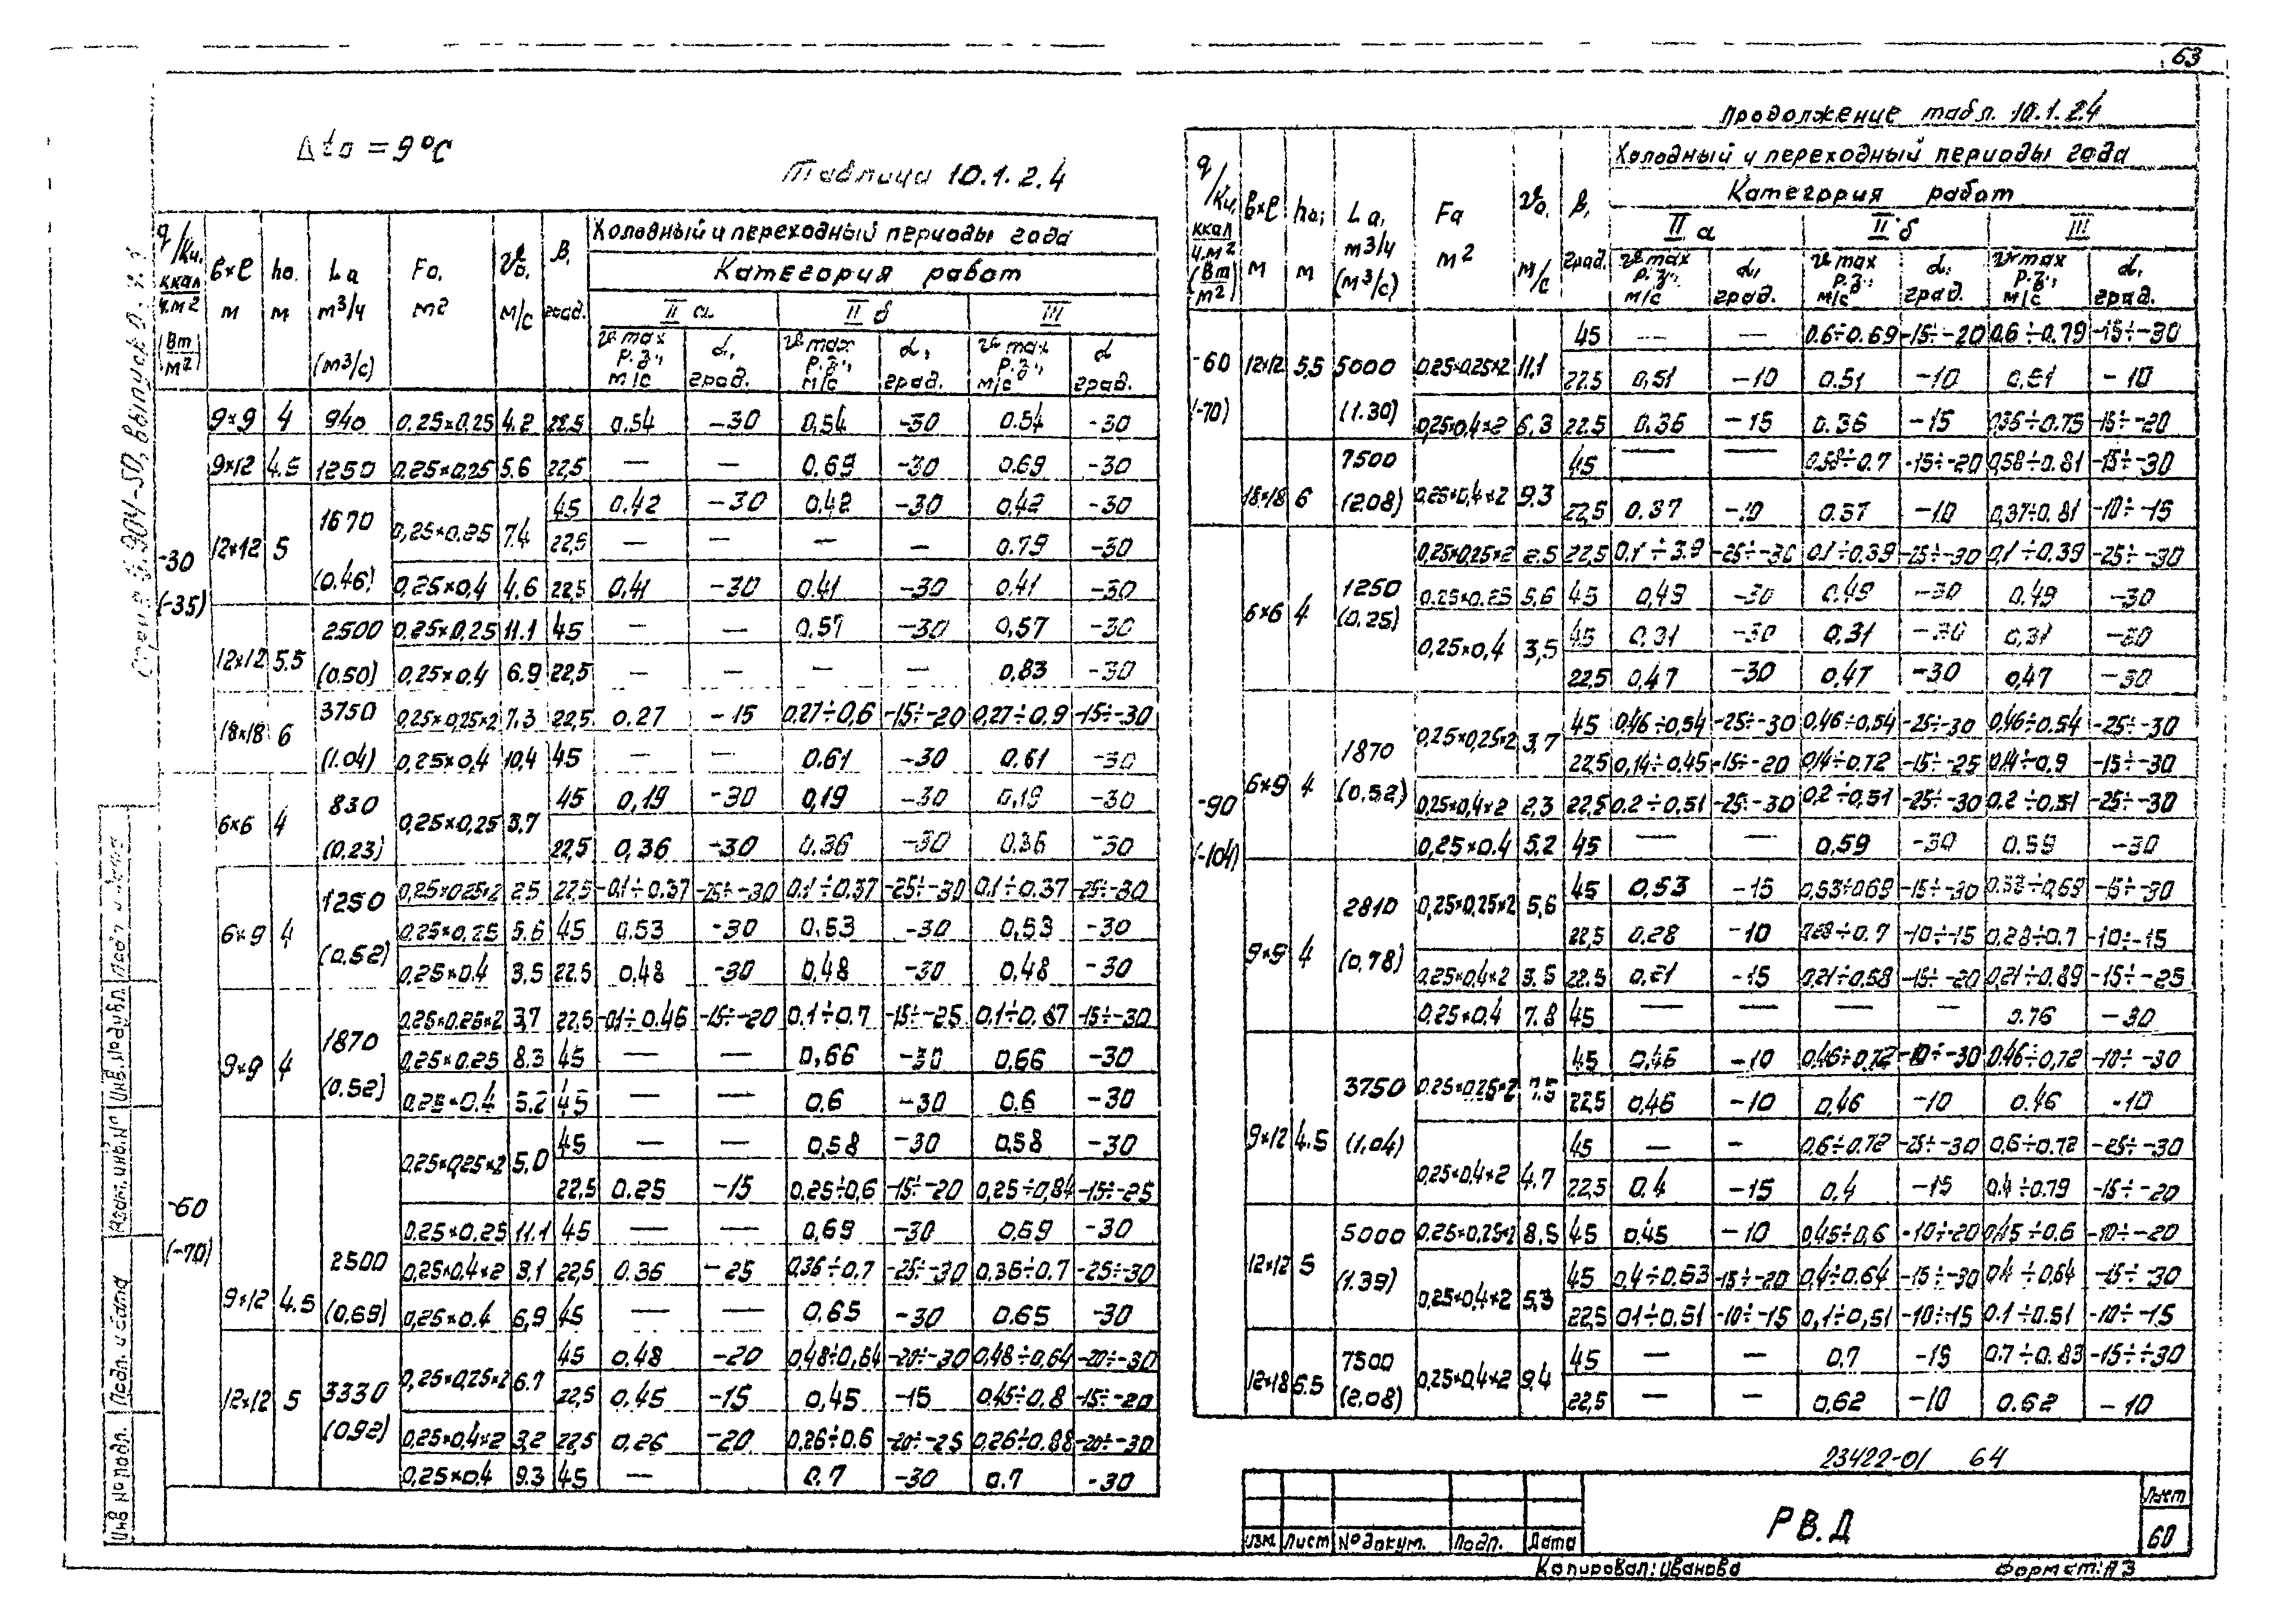 63
Δto = 9°С
Таблица 10.1.2.4
q/Kц, ккал/ч.м² (Вт/м²) | в×ℓ м | ho. м | Lа м³/ч (м³/с) | Fо, м² | vо, м/с | β, град. | Холодный и переходный периоды года
Категория работ
IIа | IIб | III
v max р.з., м/с | α, град. | v max р.з., м/с | α, град. | v max р.з., м/с | α град.
-30 (-35) | 9×9 | 4 | 940 | 0,25×0,25 | 4.2 | 22,5 | 0.54 | -30 | 0,54 | -30 | 0.54 | -30
9×12 | 4.5 | 1250 | 0.25×0,25 | 5.6 | 22,5 | — | — | 0,69 | -30 | 0.69 | -30
12×12 | 5 | 1670 (0.46) | 0,25×0.25 | 7.4 | 45 | 0.42 | -30 | 0,42 | -30 | 0.42 | -30
22,5 | — | — | — | — | 0.79 | -30
0,25×0,4 | 4,6 | 22,5 | 0,41 | -30 | 0.41 | -30 | 0.41 | -30
12×12 | 5.5 | 2500 (0.50) | 0.25×0,25 | 11.1 | 45 | — | — | 0,57 | -30 | 0,57 | -30
0,25×0.4 | 6.9 | 22,5 | — | — | — | — | 0,83 | -30
18×18 | 6 | 3750 (1.04) | 0,25×0,25×2 | 7.3 | 22,5 | 0.27 | -15 | 0,27÷0,6 | -15÷-20 | 0,27÷0,9 | -15÷-30
0,25×0,4 | 10,4 | 45 | — | — | 0.61 | -30 | 0.61 | -30
6×6 | 4 | 830 (0,23) | 0,25×0,25 | 3.7 | 45 | 0,19 | -30 | 0,19 | -30 | 0,19 | -30
22,5 | 0,36 | -30 | 0.36 | -30 | 0.36 | -30
-60 (-70) | 6×9 | 4 | 1250 (0.52) | 0,25×0,25×2 | 2.5 | 22,5 | -0.1÷0.37 | -25÷-30 | 0.1÷0,37 | -25÷-30 | 0,1÷0.37 | -25÷-30
0.25×0,25 | 5.6 | 45 | 0.53 | -30 | 0,53 | -30 | 0,53 | -30
0.25×0.4 | 3,5 | 22,5 | 0,48 | -30 | 0,48 | -30 | 0,48 | -30
9×9 | 4 | 1870 (0.52) | 0.25×0.25×2 | 3,7 | 22,5 | -0,1÷0.46 | -15÷-20 | 0.1÷0.7 | -15÷-25 | 0,1÷0.67 | -15÷-30
0,25×0.25 | 8.3 | 45 | — | — | 0,66 | -30 | 0,66 | -30
0.25×0.4 | 5.2 | 45 | — | — | 0,6 | -30 | 0.6 | -30
9×12 | 4.5 | 2500 (0,69) | 0.25×0,25×2 | 5.0 | 45 | — | — | 0,58 | -30 | 0,58 | -30
22,5 | 0.25 | -15 | 0,25÷0,6 | -15÷-20 | 0,25÷0,84 | -15÷-25
0.25×0.25 | 11.1 | 45 | — | — | 0,69 | -30 | 0.69 | -30
0,25×0,4×2 | 3,1 | 22,5 | 0.36 | -25 | 0,36÷0.7 | -25÷-30 | 0,36÷0.7 | -25÷-30
0,25×0.4 | 6,9 | 45 | — | — | 0.65 | -30 | 0.65 | -30
12×12 | 5 | 3330 (0.92) | 0,25×0,25×2 | 6.7 | 45 | 0.48 | -20 | 0,48÷0,64 | -20÷-30 | 0,48÷0,64 | -20÷-30
22,5 | 0,45 | -15 | 0,45 | -15 | 0,45÷0,8 | -15÷-20
0,25×0,4×2 | 3,2 | 22,5 | 0,26 | -20 | 0.26÷0.6 | -20÷-25 | 0,26÷0.88 | -20÷-30
0,25×0,4 | 9.3 | 45 | — | 0.7 | -30 | 0.7 | -30
Продолжение табл. 10.1.2.4
q/Kц, ккал/ч.м² (Вт/м²) | в×ℓ м | ho, м | Lа, м³/ч (м³/с) | Fа м² | vо, м/с | β, град. | Холодный и переходный периоды года
Категория работ
IIа | IIб | III
v max р.з., м/с | α, град. | v max р.з., м/с | α, град. | v max р.з., м/с | α, град.
-60 (-70) | 12×12 | 5,5 | 5000 (1.30) | 0,25×0,25×2 | 11.1 | 45 | — | — | 0.6÷0.69 | -15÷-20 | 0.6÷0.79 | -15÷-30
22.5 | 0,51 | -10 | 0.51 | -10 | 0,51 | -10
0,25×0,4×2 | 6,3 | 22.5 | 0.36 | -15 | 0.36 | -15 | 0,36÷0.75 | -15÷-20
18×18 | 6 | 7500 (2.08) | 0.25×0,4×2 | 9.3 | 45 | — | — | 0,58÷0.7 | -15÷-20 | 0,58÷0.81 | -15÷-30
22,5 | 0.37 | -10 | 0.37 | -10 | 0,37÷0.81 | -10÷-15
-90 (-104) | 6×6 | 4 | 1250 (0.25) | 0,25×0,25×2 | 2.5 | 22,5 | 0.1÷3.9 | -25÷-30 | 0,1÷0.39 | -25÷-30 | 0,1÷0.39 | -25÷-30
0.25×0.25 | 5,6 | 45 | 0,49 | -30 | 0.49 | -30 | 0.49 | -30
0,25×0,4 | 3,5 | 45 | 0,31 | -30 | 0,31 | -30 | 0,31 | -30
22,5 | 0,47 | -30 | 0,47 | -30 | 0,47 | -30
6×9 | 4 | 1870 (0.52) | 0,25×0,25×2 | 3,7 | 45 | 0,46÷0,54 | -25÷-30 | 0,46÷0,54 | -25÷-30 | 0,46÷0.54 | -25÷-30
22,5 | 0,14÷0,45 | -15÷-20 | 0,14÷0.72 | -15÷-25 | 0,14÷0,9 | -15÷-30
0,25×0,4×2 | 2,3 | 22,5 | 0.2÷0,51 | -25÷-30 | 0,2÷0,51 | -25÷-30 | 0.2÷0.51 | -25÷-30
0,25×0.4 | 5,2 | 45 | — | — | 0,59 | -30 | 0.59 | -30
9×9 | 4 | 2810 (0,78) | 0,25×0,25×2 | 5,6 | 45 | 0,53 | -15 | 0,53÷0,69 | -15÷-30 | 0.53÷0,69 | -15÷-30
22,5 | 0.28 | -10 | 0,28÷0.7 | -10÷-15 | 0,28÷0.7 | -10÷-15
0.25×0,4×2 | 3.5 | 22.5 | 0,21 | -15 | 0,21÷0,58 | -15÷-20 | 0,21÷0,89 | -15÷-25
0,25×0,4 | 7.8 | 45 | — | — | — | — | 0.76 | -30
9×12 | 4.5 | 3750 (1.04) | 0.25×0,25×2 | 7.5 | 45 | 0,46 | -10 | 0,46÷0,72 | -10÷-30 | 0.46÷0,72 | -10÷-30
22,5 | 0,46 | -10 | 0,46 | -10 | 0.46 | -10
0,25×0,4×2 | 4.7 | 45 | — | — | 0,6÷0.72 | -25÷-30 | 0,6÷0.72 | -25÷-30
22,5 | 0.4 | -15 | 0,4 | -15 | 0.4÷0.79 | -15÷-20
12×12 | 5 | 5000 (1.39) | 0.25×0,25×2 | 8,5 | 45 | 0,45 | -10 | 0,45÷0,6 | -10÷-20 | 0,45÷0.6 | -10÷-20
0,25×0,4×2 | 5,3 | 45 | 0,4÷0.63 | -15÷-20 | 0,4÷0.64 | -15÷-30 | 0,4÷0,64 | -15÷-30
22,5 | 0,1÷0,51 | -10÷-15 | 0,1÷0,51 | -10÷-15 | 0.1÷0.51 | -10÷-15
12×18 | 5.5 | 7500 (2.08) | 0,25×0,4×2 | 9.4 | 45 | — | — | 0.7 | -15 | 0.7÷0.83 | -15÷÷30
22,5 | — | — | 0,62 | -10 | 0.62 | -10
23422-01 64
РВ.Д
Лист
60
Изм. Лист № докум. Подп. Дата
Копировал: Иванова Формат: А3
Инв № подл. Подп. и дата Взам. инв.№ Инв. № дубл. Подп. и дата